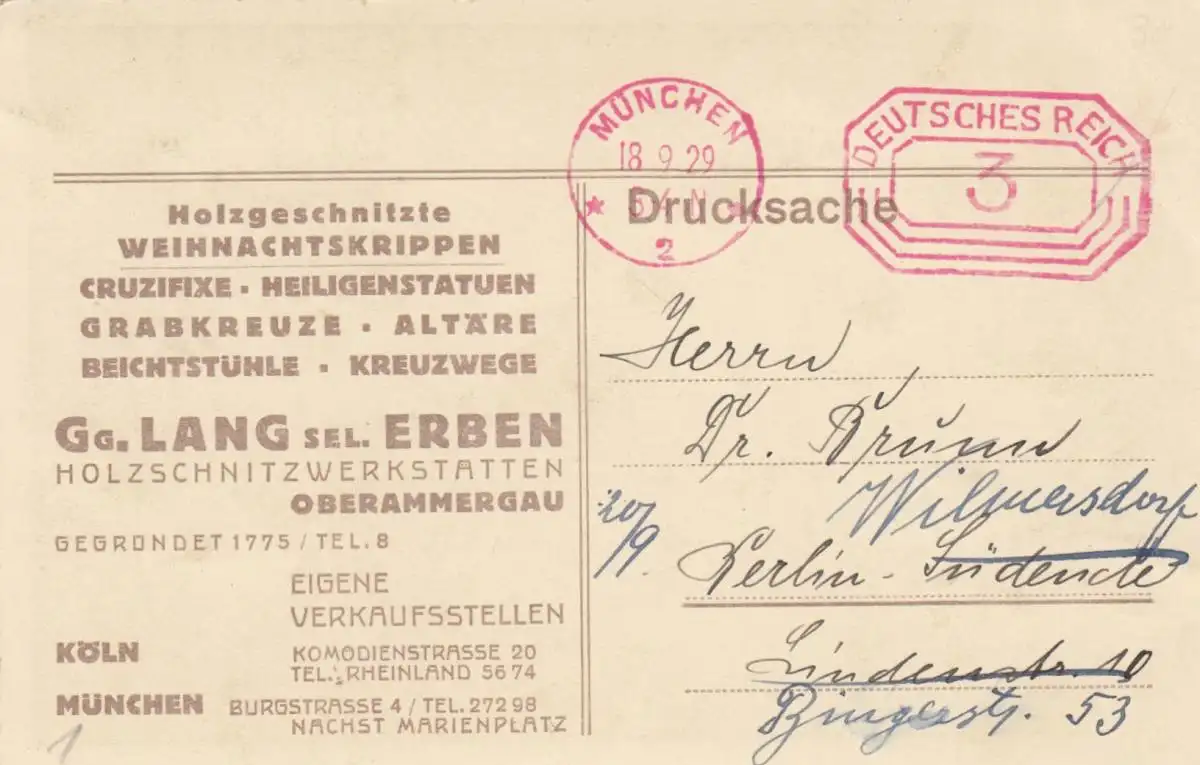 MÜNCHEN
18 9 29
2
DEUTSCHES REICH
3
Drucksache
Holzgeschnitzte
WEIHNACHTSKRIPPEN
CRUZIFIXE · HEILIGENSTATUEN
GRABKREUZE · ALTÄRE
BEICHTSTÜHLE · KREUZWEGE
GG. LANG SEL. ERBEN
HOLZSCHNITZWERKSTÄTTEN
OBERAMMERGAU
GEGRÜNDET 1775 / TEL. 8
EIGENE
VERKAUFSSTELLEN
KÖLN KOMÖDIENSTRASSE 20
TEL. RHEINLAND 5674
MÜNCHEN BURGSTRASSE 4 / TEL. 27298
NÄCHST MARIENPLATZ
1
Herrn
Dr. Brunn
Wilmersdorf
20/9.
Berlin - Südende
Lindenstr. 10
Bingerstr. 53